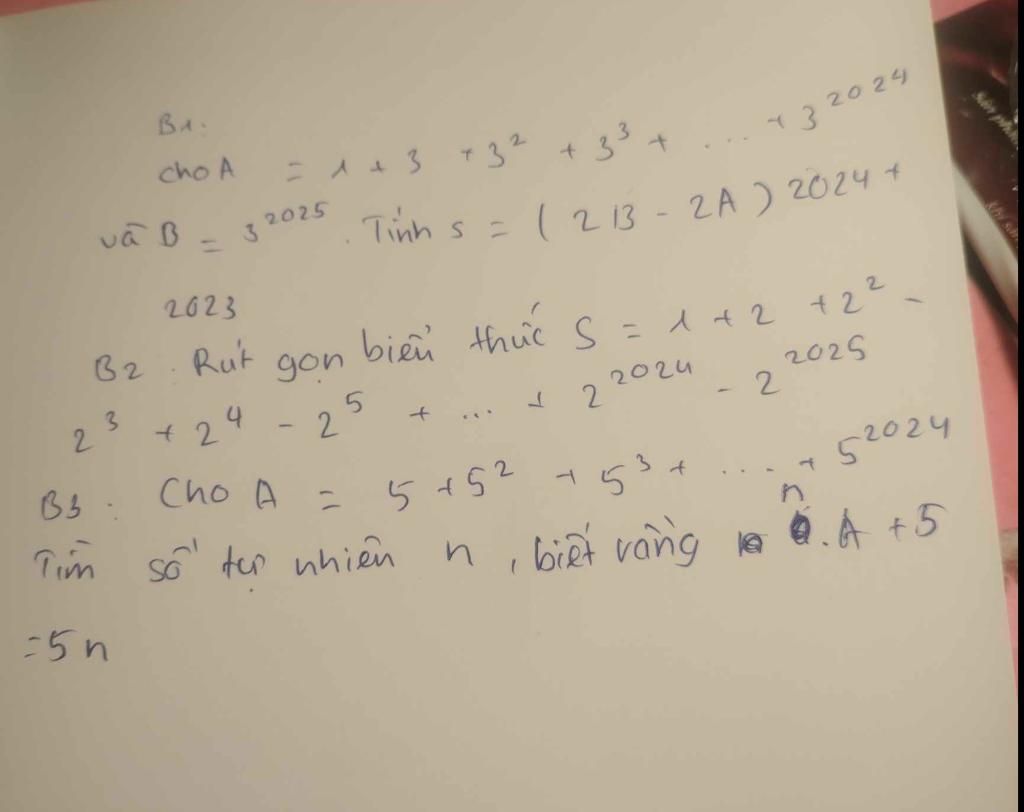 B1:
cho A = 1 + 3 + 3² + 3³ + ... + 3²⁰²⁴
và B = 3²⁰²⁵. Tính s = ( 2B - 2A ) 2024 +
2023
B2 : Rút gọn biểu thức S = 1 + 2 + 2² -
2³ + 2⁴ - 2⁵ + ... + 2²⁰²⁴ - 2²⁰²⁵
B3 : Cho A = 5 + 5² + 5³ + .... + 5²⁰²⁴
Tìm số tự nhiên n , biết rằng n . A + 5
= 5 n